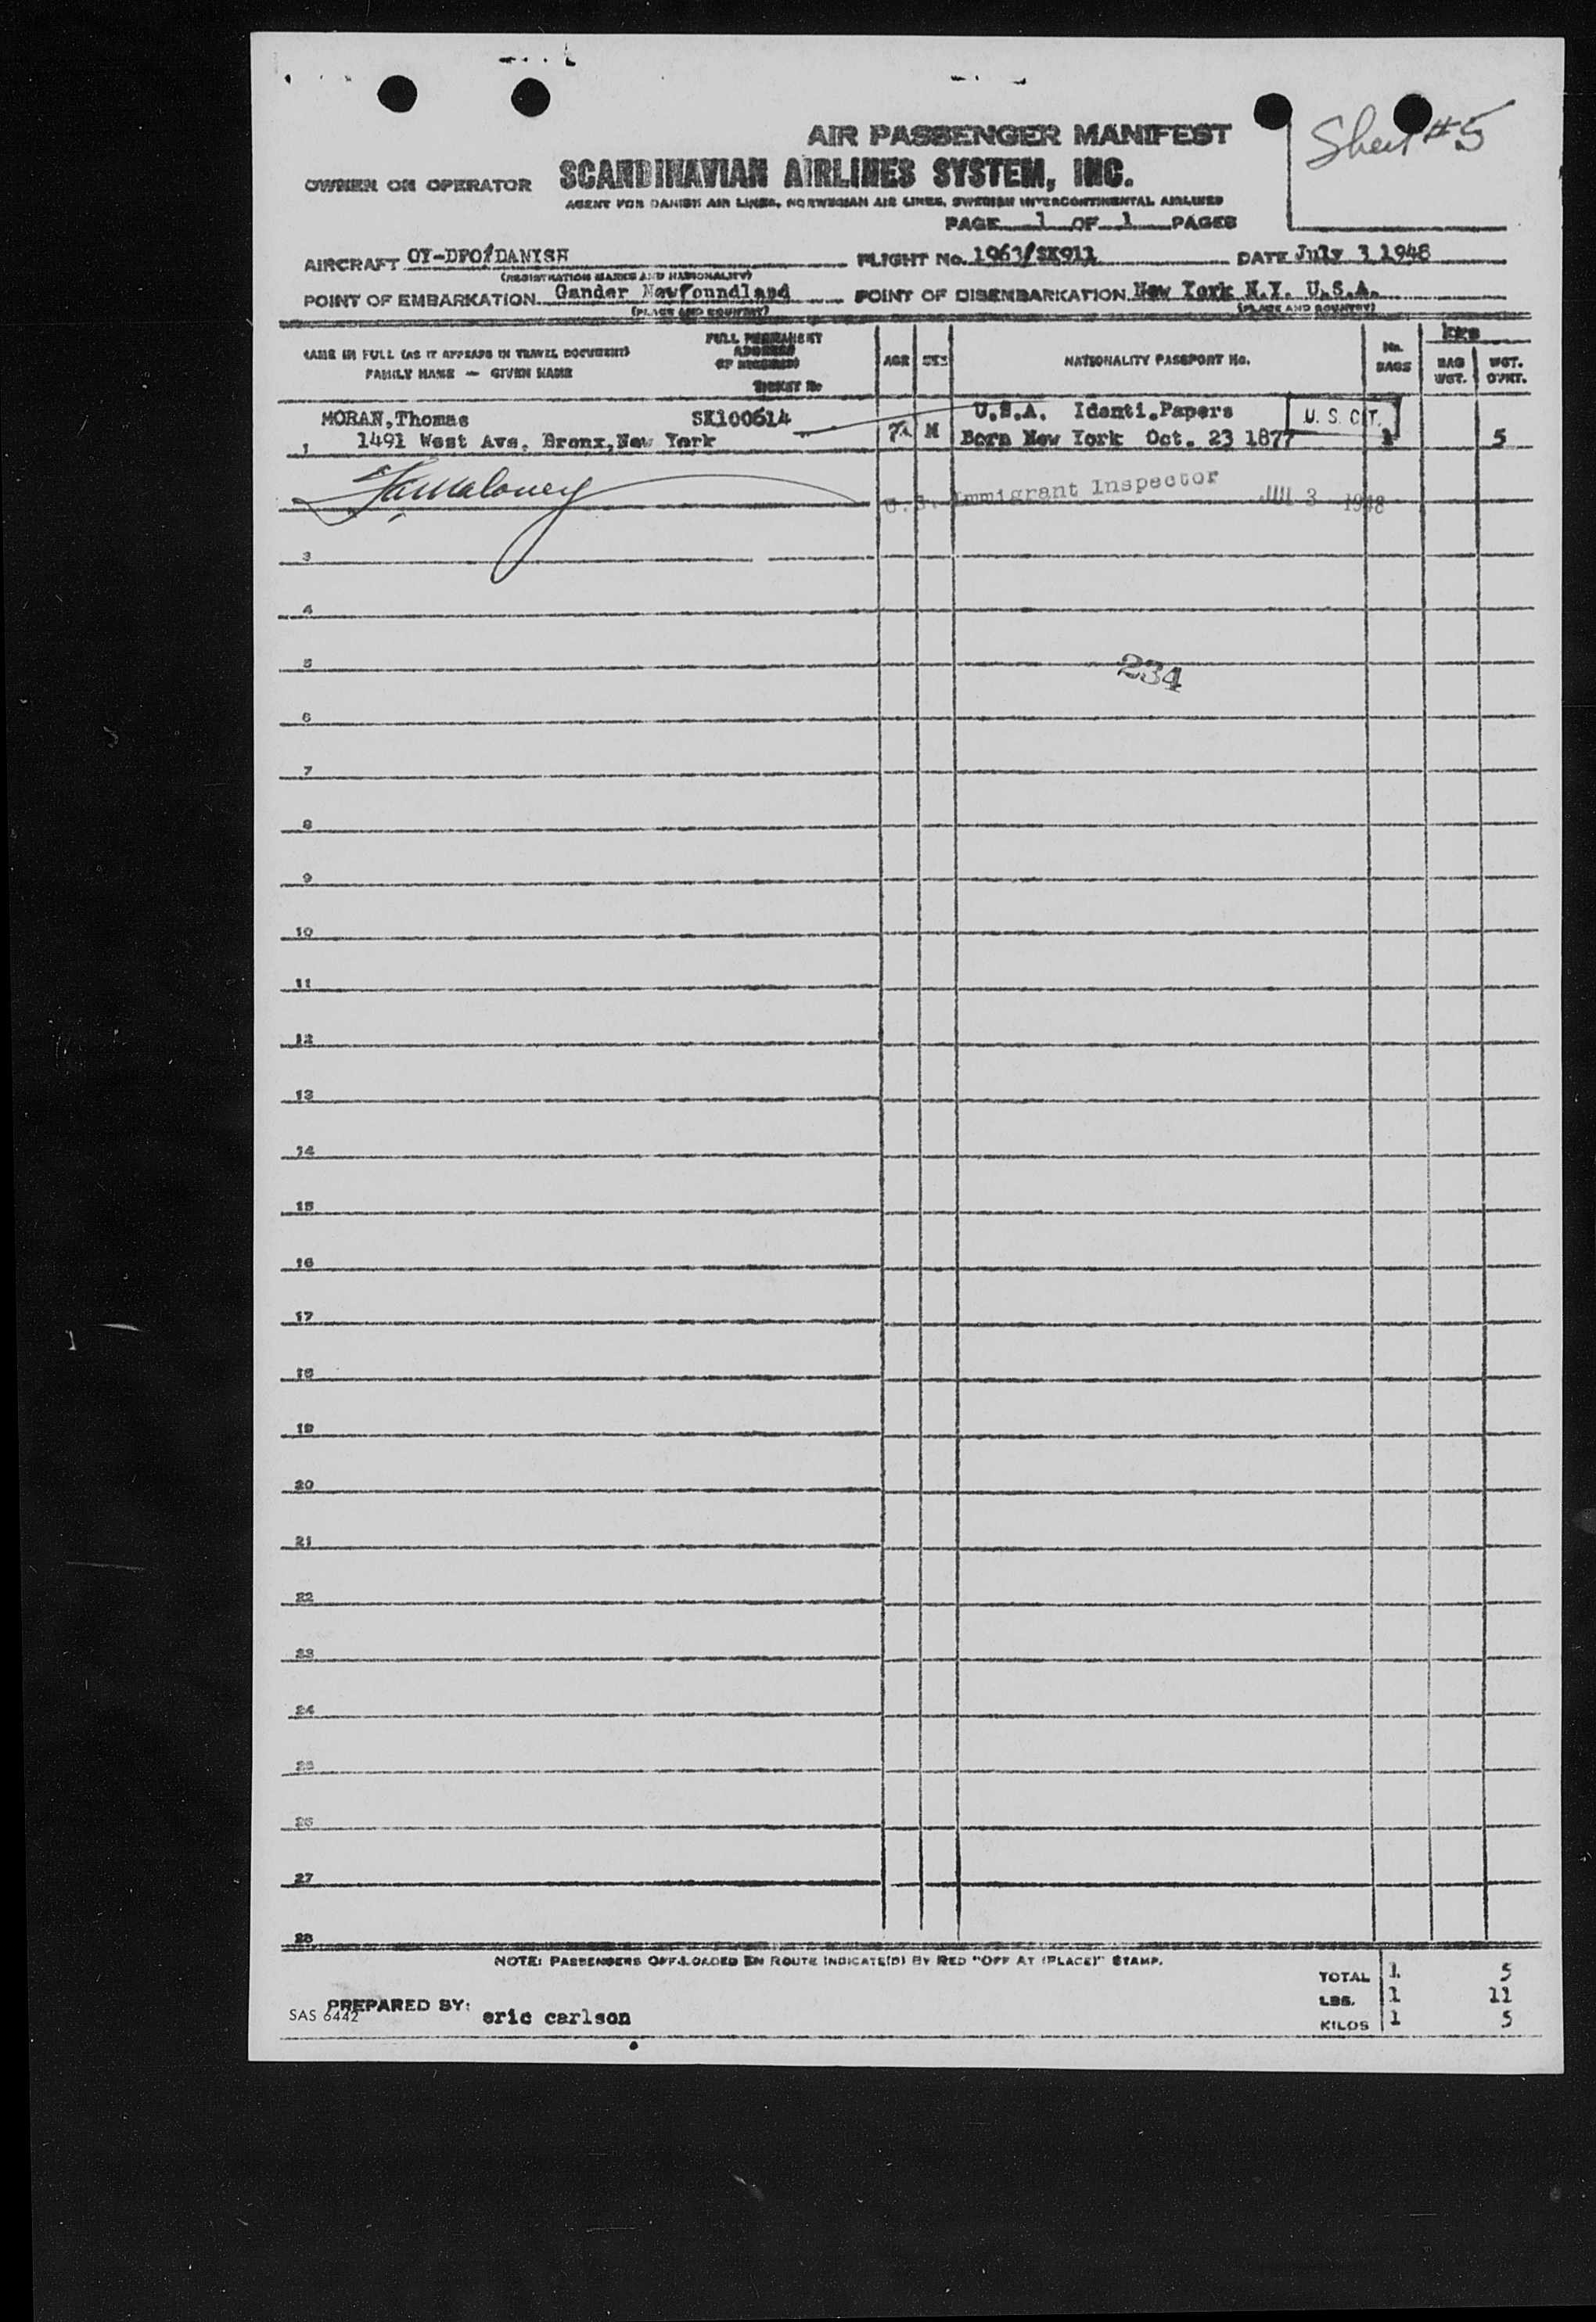 Sheet #5
AIR PASSENGER MANIFEST
OWNER OR OPERATOR SCANDINAVIAN AIRLINES SYSTEM, INC.
AGENT FOR DANISH AIR LINES, NORWEGIAN AIR LINES, SWEDISH INTERCONTINENTAL AIRLINES
PAGE 1 OF 1 PAGES
AIRCRAFT OY-DFO/DANISH FLIGHT No. 1963/SK911 DATE July 3 1948
(REGISTRATION MARKS AND NATIONALITY)
POINT OF EMBARKATION Gander Newfoundland POINT OF DISEMBARKATION New York N.Y. U.S.A.
(PLACE AND COUNTRY) (PLACE AND COUNTRY)
NAME IN FULL (AS IT APPEARS IN TRAVEL DOCUMENT)
FAMILY NAME — GIVEN NAME
FULL PERMANENT
ADDRESS
(IF REQUIRED)
TICKET No
AGE SEX NATIONALITY PASSPORT No. No. BAGS
BAG WGT. WGT. OVRT.
MORAN,Thomas SK100614 U.S.A. Identi.Papers U. S. CIT.
1 1491 West Ave. Bronx,New York M Born New York Oct. 23 1877 1 5
U.S. Immigrant Inspector JUL 3 1948
3
4
5
234
6
7
8
9
10
11
12
13
14
15
16
17
18
19
20
21
22
23
24
25
26
27
28
NOTE: PASSENGERS OFF-LOADED EN ROUTE INDICATE(D) BY RED "OFF AT (PLACE)" STAMP.
TOTAL 1 5
LBS. 1 11
KILOS 1 5
PREPARED BY: eric carlson
SAS 6442